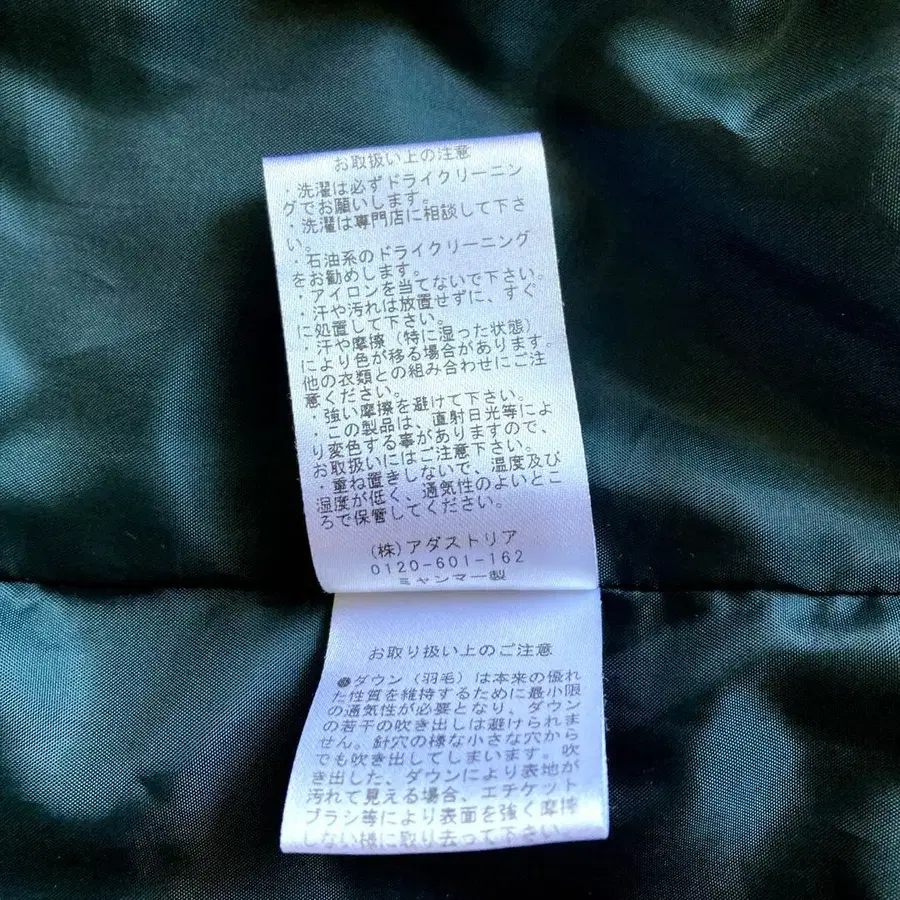 お取扱い上の注意
・洗濯は必ずドライクリーニン
グでお願いします。
・洗濯は専門店に相談して下さ
い。
・石油系のドライクリーニング
をお勧めします。
・アイロンを当てないで下さい。
・汗や汚れは放置せずに、すぐ
に処置して下さい。
・汗や摩擦（特に湿った状態）
により色が移る場合があります。
他の衣類との組み合わせにご注
意ください。
・強い摩擦を避けて下さい。
・この製品は、直射日光等によ
り変色する事がありますので、
お取扱いにはご注意下さい。
・重ね置きしないで、温度及び
湿度が低く、通気性のよいとこ
ろで保管してください。
(株)アダストリア
0120-601-162
ミャンマー製
お取り扱い上のご注意
●ダウン（羽毛）は本来の優れ
た性質を維持するために最小限
の通気性が必要となり、ダウン
の若干の吹き出しは避けられま
せん。針穴の様な小さな穴から
でも吹き出してしまいます。吹
き出した、ダウンにより表地が
汚れて見える場合、エチケット
ブラシ等により表面を強く摩擦
しない様に取り去って下さい。